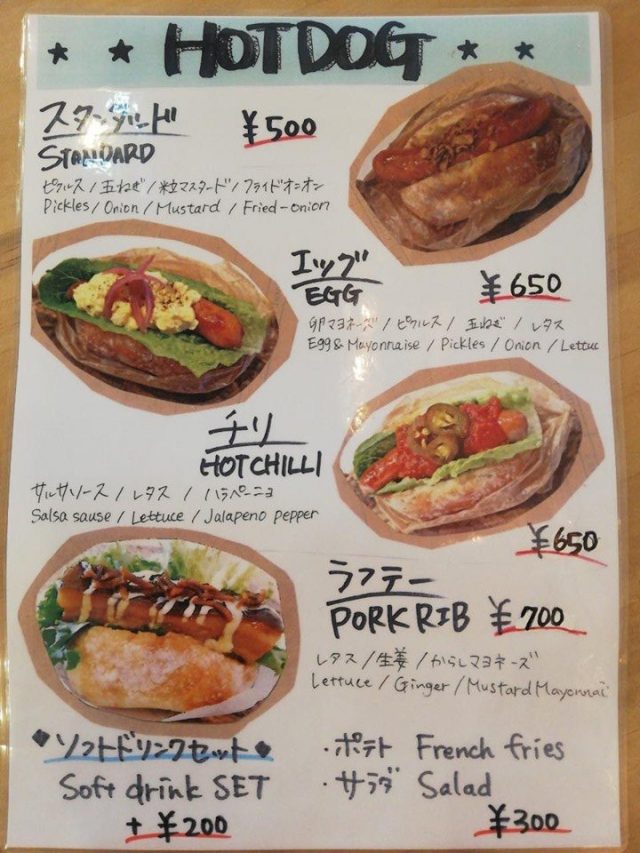 ★ ★ HOTDOG ★ ★
スタンダード ¥500
STANDARD
ピクルス/玉ねぎ/粒マスタード/フライドオニオン
Pickles/Onion/Mustard/Fried-onion
エッグ ¥650
EGG
卵マヨネーズ/ピクルス/玉ねぎ/レタス
Egg&Mayonnaise/Pickles/Onion/Lettuc
チリ
HOT CHILLI
サルサソース/レタス/ハラペーニョ
Salsa sause/Lettuce/Jalapeno pepper
¥650
ラフテー
PORK RIB ¥700
レタス/生姜/からしマヨネーズ
Lettuce/Ginger/Mustard Mayonnai
◆ソフトドリンクセット◆
Soft drink SET
+¥200
・ポテト French fries
・サラダ Salad
¥300